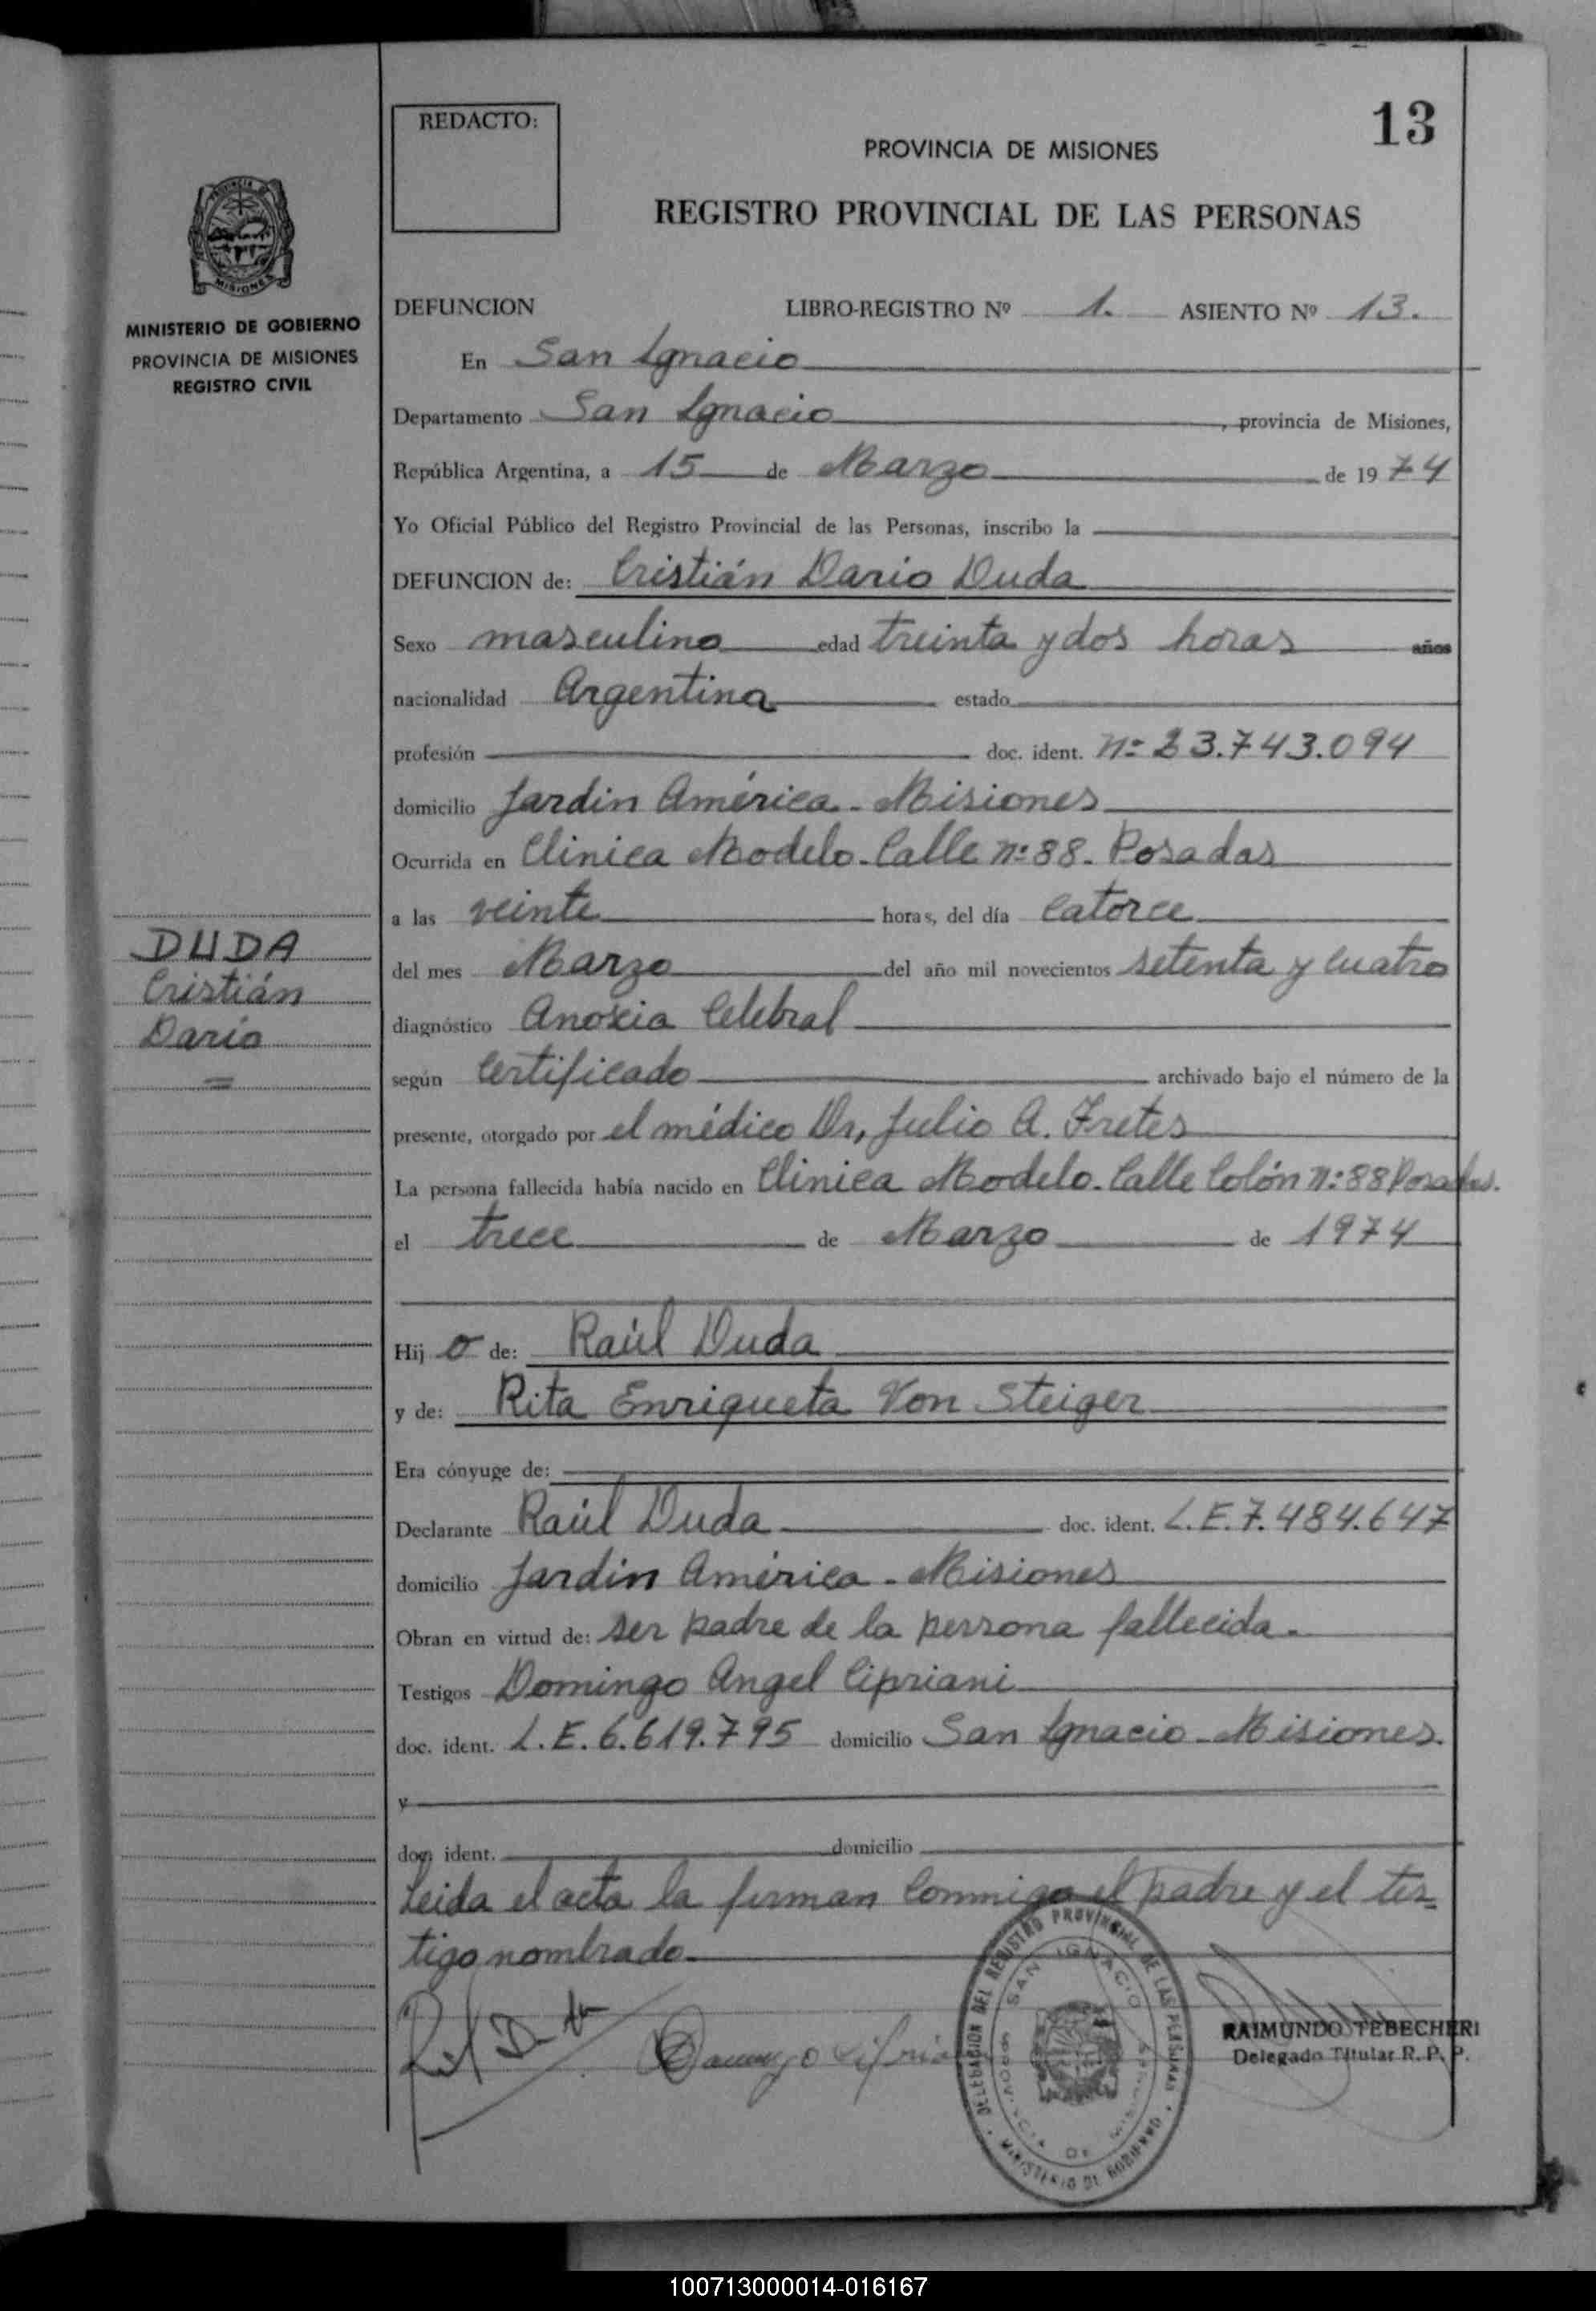 REDACTO:
13
PROVINCIA DE MISIONES
REGISTRO PROVINCIAL DE LAS PERSONAS
PROVINCIA DE
MISIONES
MINISTERIO DE GOBIERNO
PROVINCIA DE MISIONES
REGISTRO CIVIL
DUDA
Cristián
Darío
=
DEFUNCION LIBRO-REGISTRO Nº 1. ASIENTO Nº 13.
En San Ignacio
Departamento San Ignacio, provincia de Misiones,
República Argentina, a 15 de Marzo de 1974
Yo Oficial Público del Registro Provincial de las Personas, inscribo la
DEFUNCION de: Cristián Dario Duda
Sexo masculino edad treinta y dos horas años
nacionalidad Argentina estado
profesión doc. ident. nº 23.743.094
domicilio Jardin América - Misiones
Ocurrida en Clinica Modelo - Calle nº 88 - Posadas
a las veinte horas, del día Catorce
del mes Marzo del año mil novecientos setenta y cuatro
diagnóstico Anoxia Celebral
según Certificado archivado bajo el número de la
presente, otorgado por el médico Dr, Julio A. Fretes
La persona fallecida había nacido en Clinica Modelo - Calle Colón nº 88 Posadas.
el trece de Marzo de 1974
Hijo de: Raúl Duda
y de: Rita Enriqueta Von Steiger
Era cónyuge de:
Declarante Raúl Duda doc. ident. L.E. 7.484.647
domicilio Jardin América - Misiones
Obran en virtud de: ser padre de la persona fallecida.
Testigos Domingo Angel Cipriani
doc. ident. L.E. 6.619.795 domicilio San Ignacio - Misiones.
y
doc. ident. domicilio
Leida el acta la firman conmigo el padre y el tes-
tigo nombrado.
DELEGACION DEL REGISTRO PROVINCIAL DE LAS PERSONAS
SAN IGNACIO
PROVINCIA DE MISIONES
MINISTERIO DE GOBIERNO
RAIMUNDO TEBECHERI
Delegado Titular R. P. P.
100713000014-016167